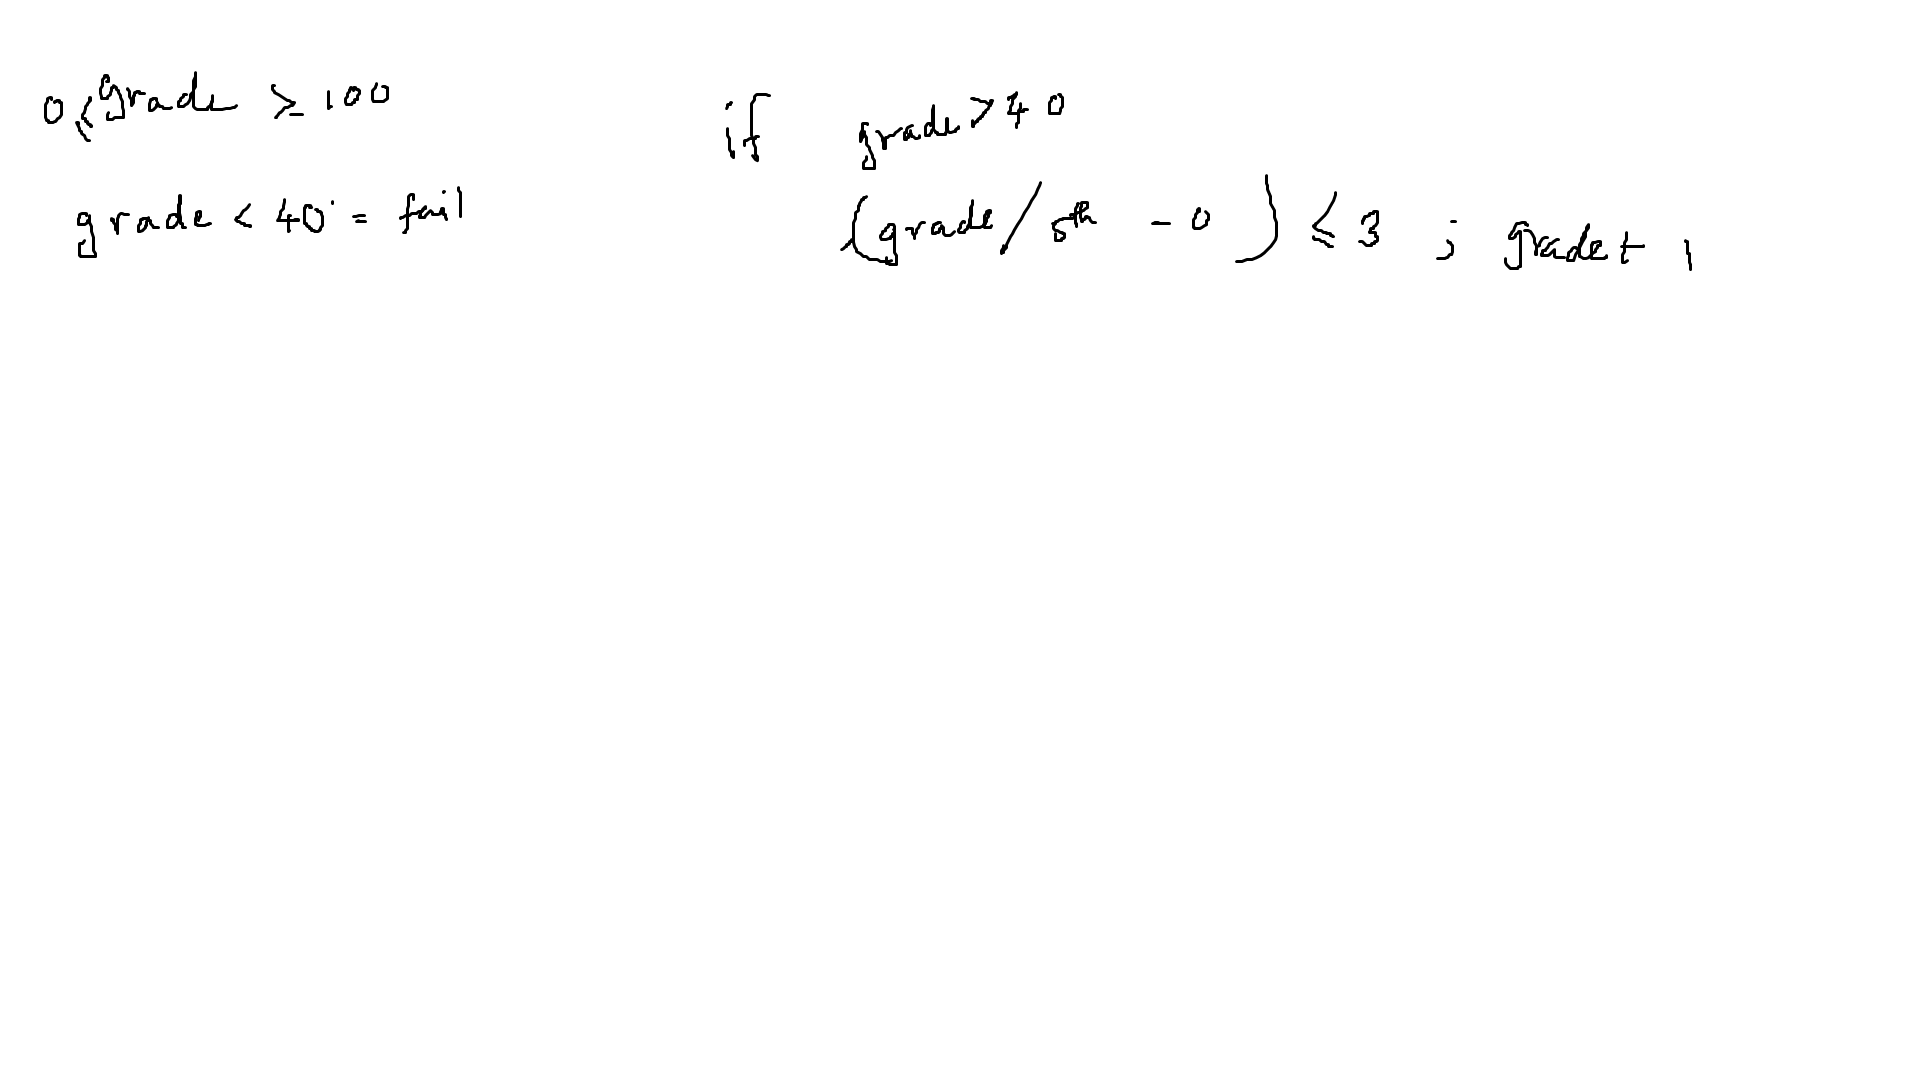 0 ≤ grade ≥ 100
grade < 40 = fail
if grade > 40
(grade / 5th - 0) ≤ 3 ; grade + 1